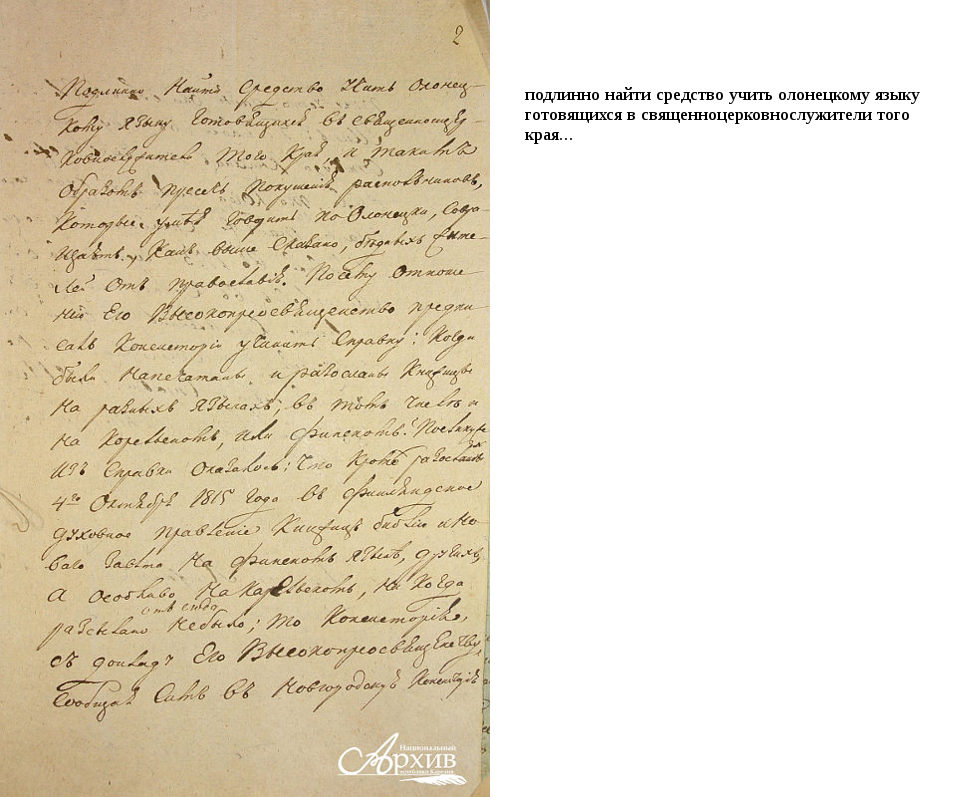 2
Подлинно найти средство учить Олонец-
кому языку готовящихся въ священноцер-
ковнослужители того края, и такимъ
образомъ пресечь покушенія раскольниковъ,
которые умѣя говорить по Олонецки, совра-
щаютъ, какъ выше сказано, бѣдныхъ жите-
лей отъ православія. По сему отноше-
нію Его Высокопреосвященство предпи-
салъ Консисторіи учинить справку: когда
были напечатаны и разосланы книжицы
на разныхъ языкахъ, въ томъ числѣ и
на Корельскомъ, или Финскомъ?
изъ справки оказалось: что кромѣ
4го Октября 1815 года въ Финляндское
духовное правленіе книжицъ библіи и Но-
ваго завѣта на финскомъ языкѣ, другихъ,
а особливо на Карельскомъ, ни когда
отъ сюда
разсылано небыло; то Консисторія,
съ докладу Его Высокопреосвященству,
сообщая симъ въ Новгородскую
Национальный
Архив
республики Карелия
подлинно найти средство учить олонецкому языку
готовящихся в священноцерковнослужители того
края…